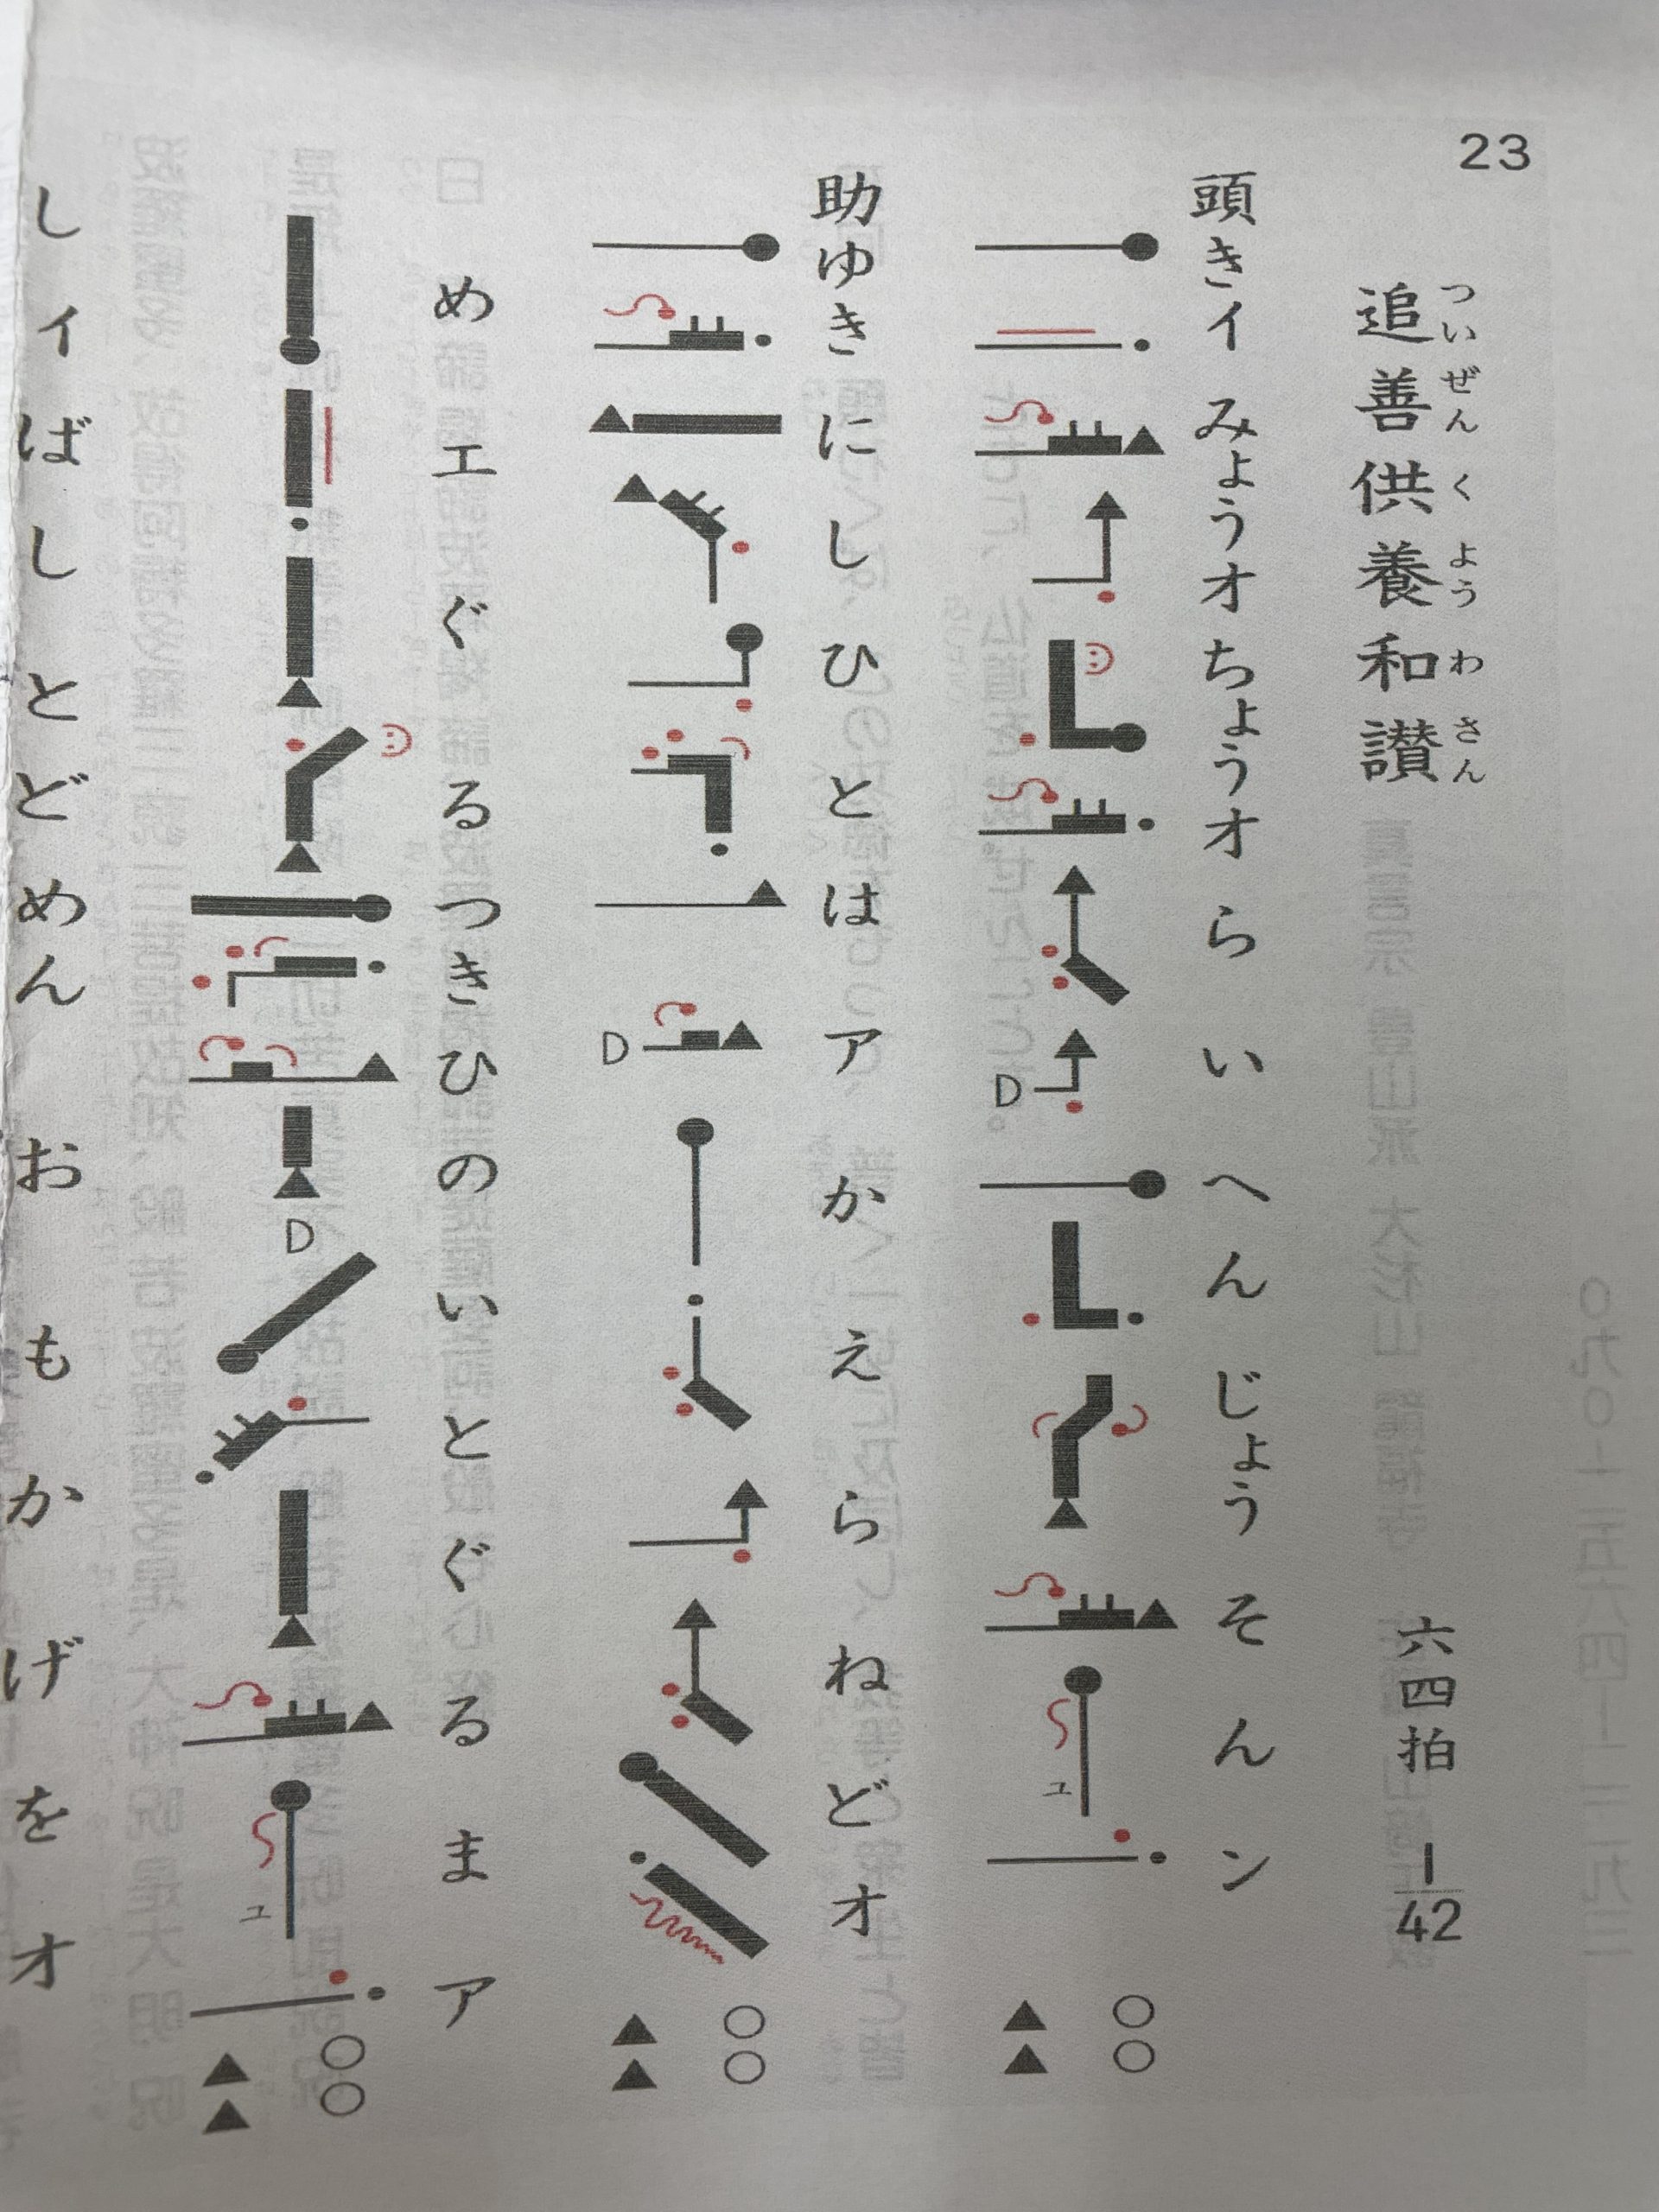 23
追善供養和讃 六四拍 1/42
ついぜんくようわさん
頭きイみょうオちょうオらいへんじょうそんン
D
ユ
助ゆきにしひとはアかえらねどオ
D
めエぐるつきひのいとぐるまア
D
ユ
しィばしとどめんおもかげをオ